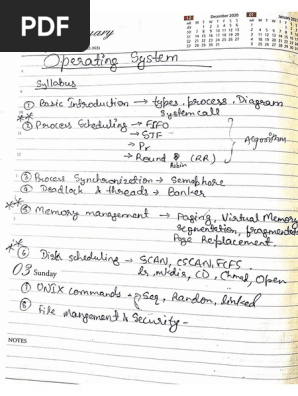 PDF
uary
December 2020
Operating System
Syllabus
① Basic Introduction → types, process, Diagram
System call
** ② Process Scheduling → FIFO
→ STF
→ Pr
→ Round (RR)
Robin
Algorithm
③ Process Synchronization → Semaphore
④ Deadlock & threads → Banker
** ⑤ Memory management → Paging, Virtual Memory
Segmentation, fragmentation
Page Replacement.
** ⑥ Disk scheduling → SCAN, CSCAN, FCFS.
03 Sunday
ls, mkdir, CD, Chmod, Open
⑦ UNIX commands → Seq, Random, linked
⑧ File Mangement & Security -
NOTES